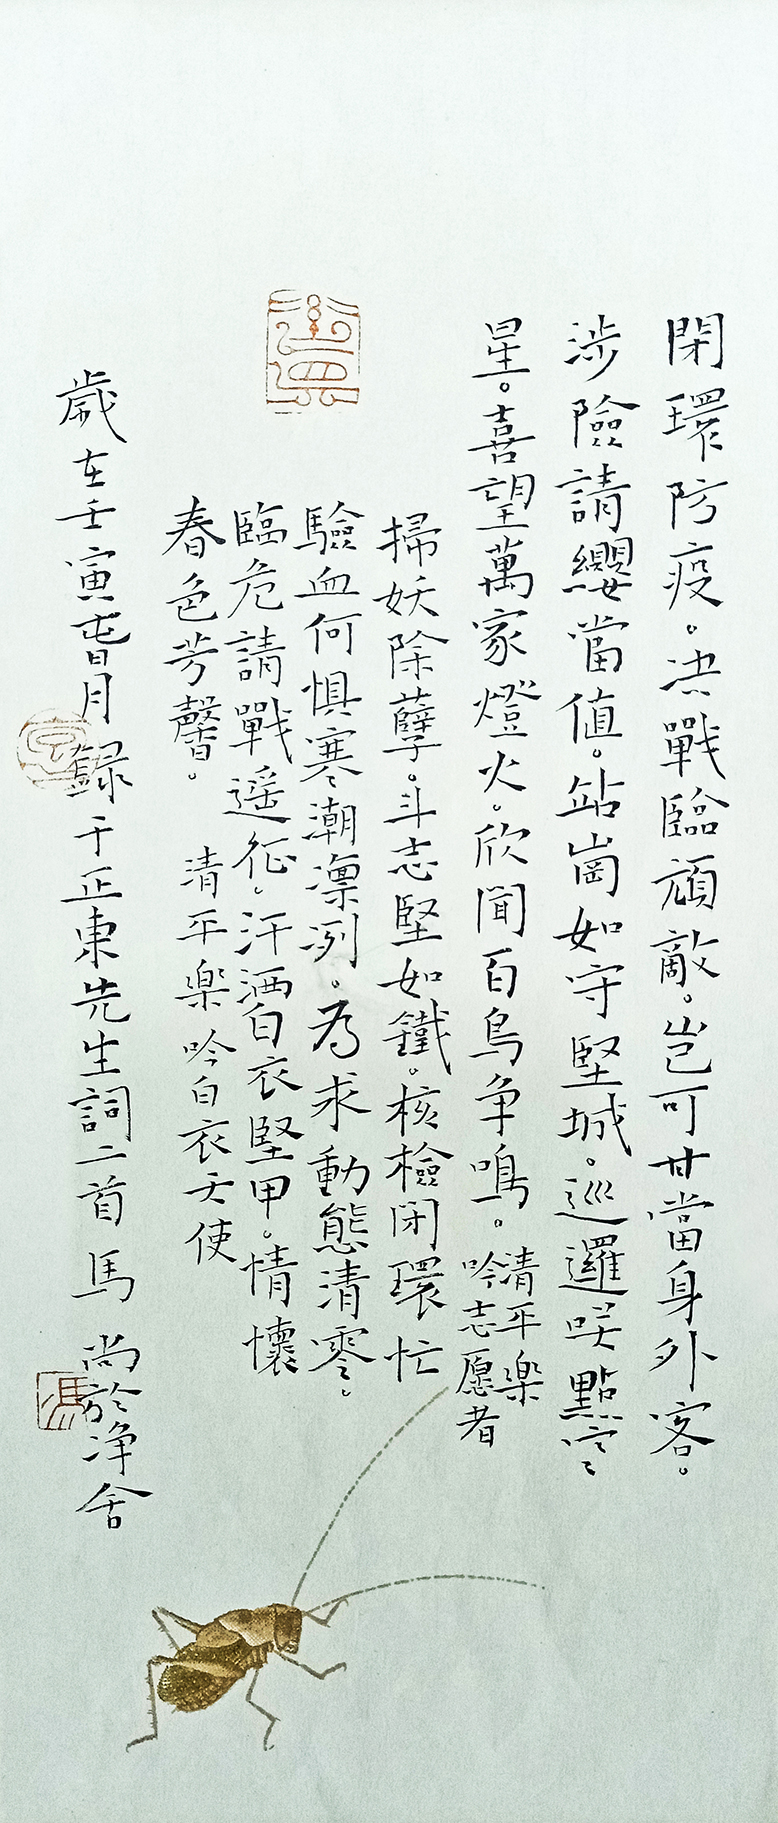 閉環防疫。决戰臨頑敵。岂可甘當身外客。
涉險請纓當值。站崗如守堅城。巡邏笑點寒
星。喜望萬家燈火。欣聞百鳥争鳴。
清平樂
吟志愿者
掃妖除孽。斗志堅如鐵。核檢閉環忙
驗血何惧寒潮凛冽。為求動態清零。
臨危請戰遥征。汗洒白衣堅甲。情懷
春色芳馨。
清平樂 吟白衣天使
歲在壬寅春月録于正東先生詞二首 馬 尚於浄舍